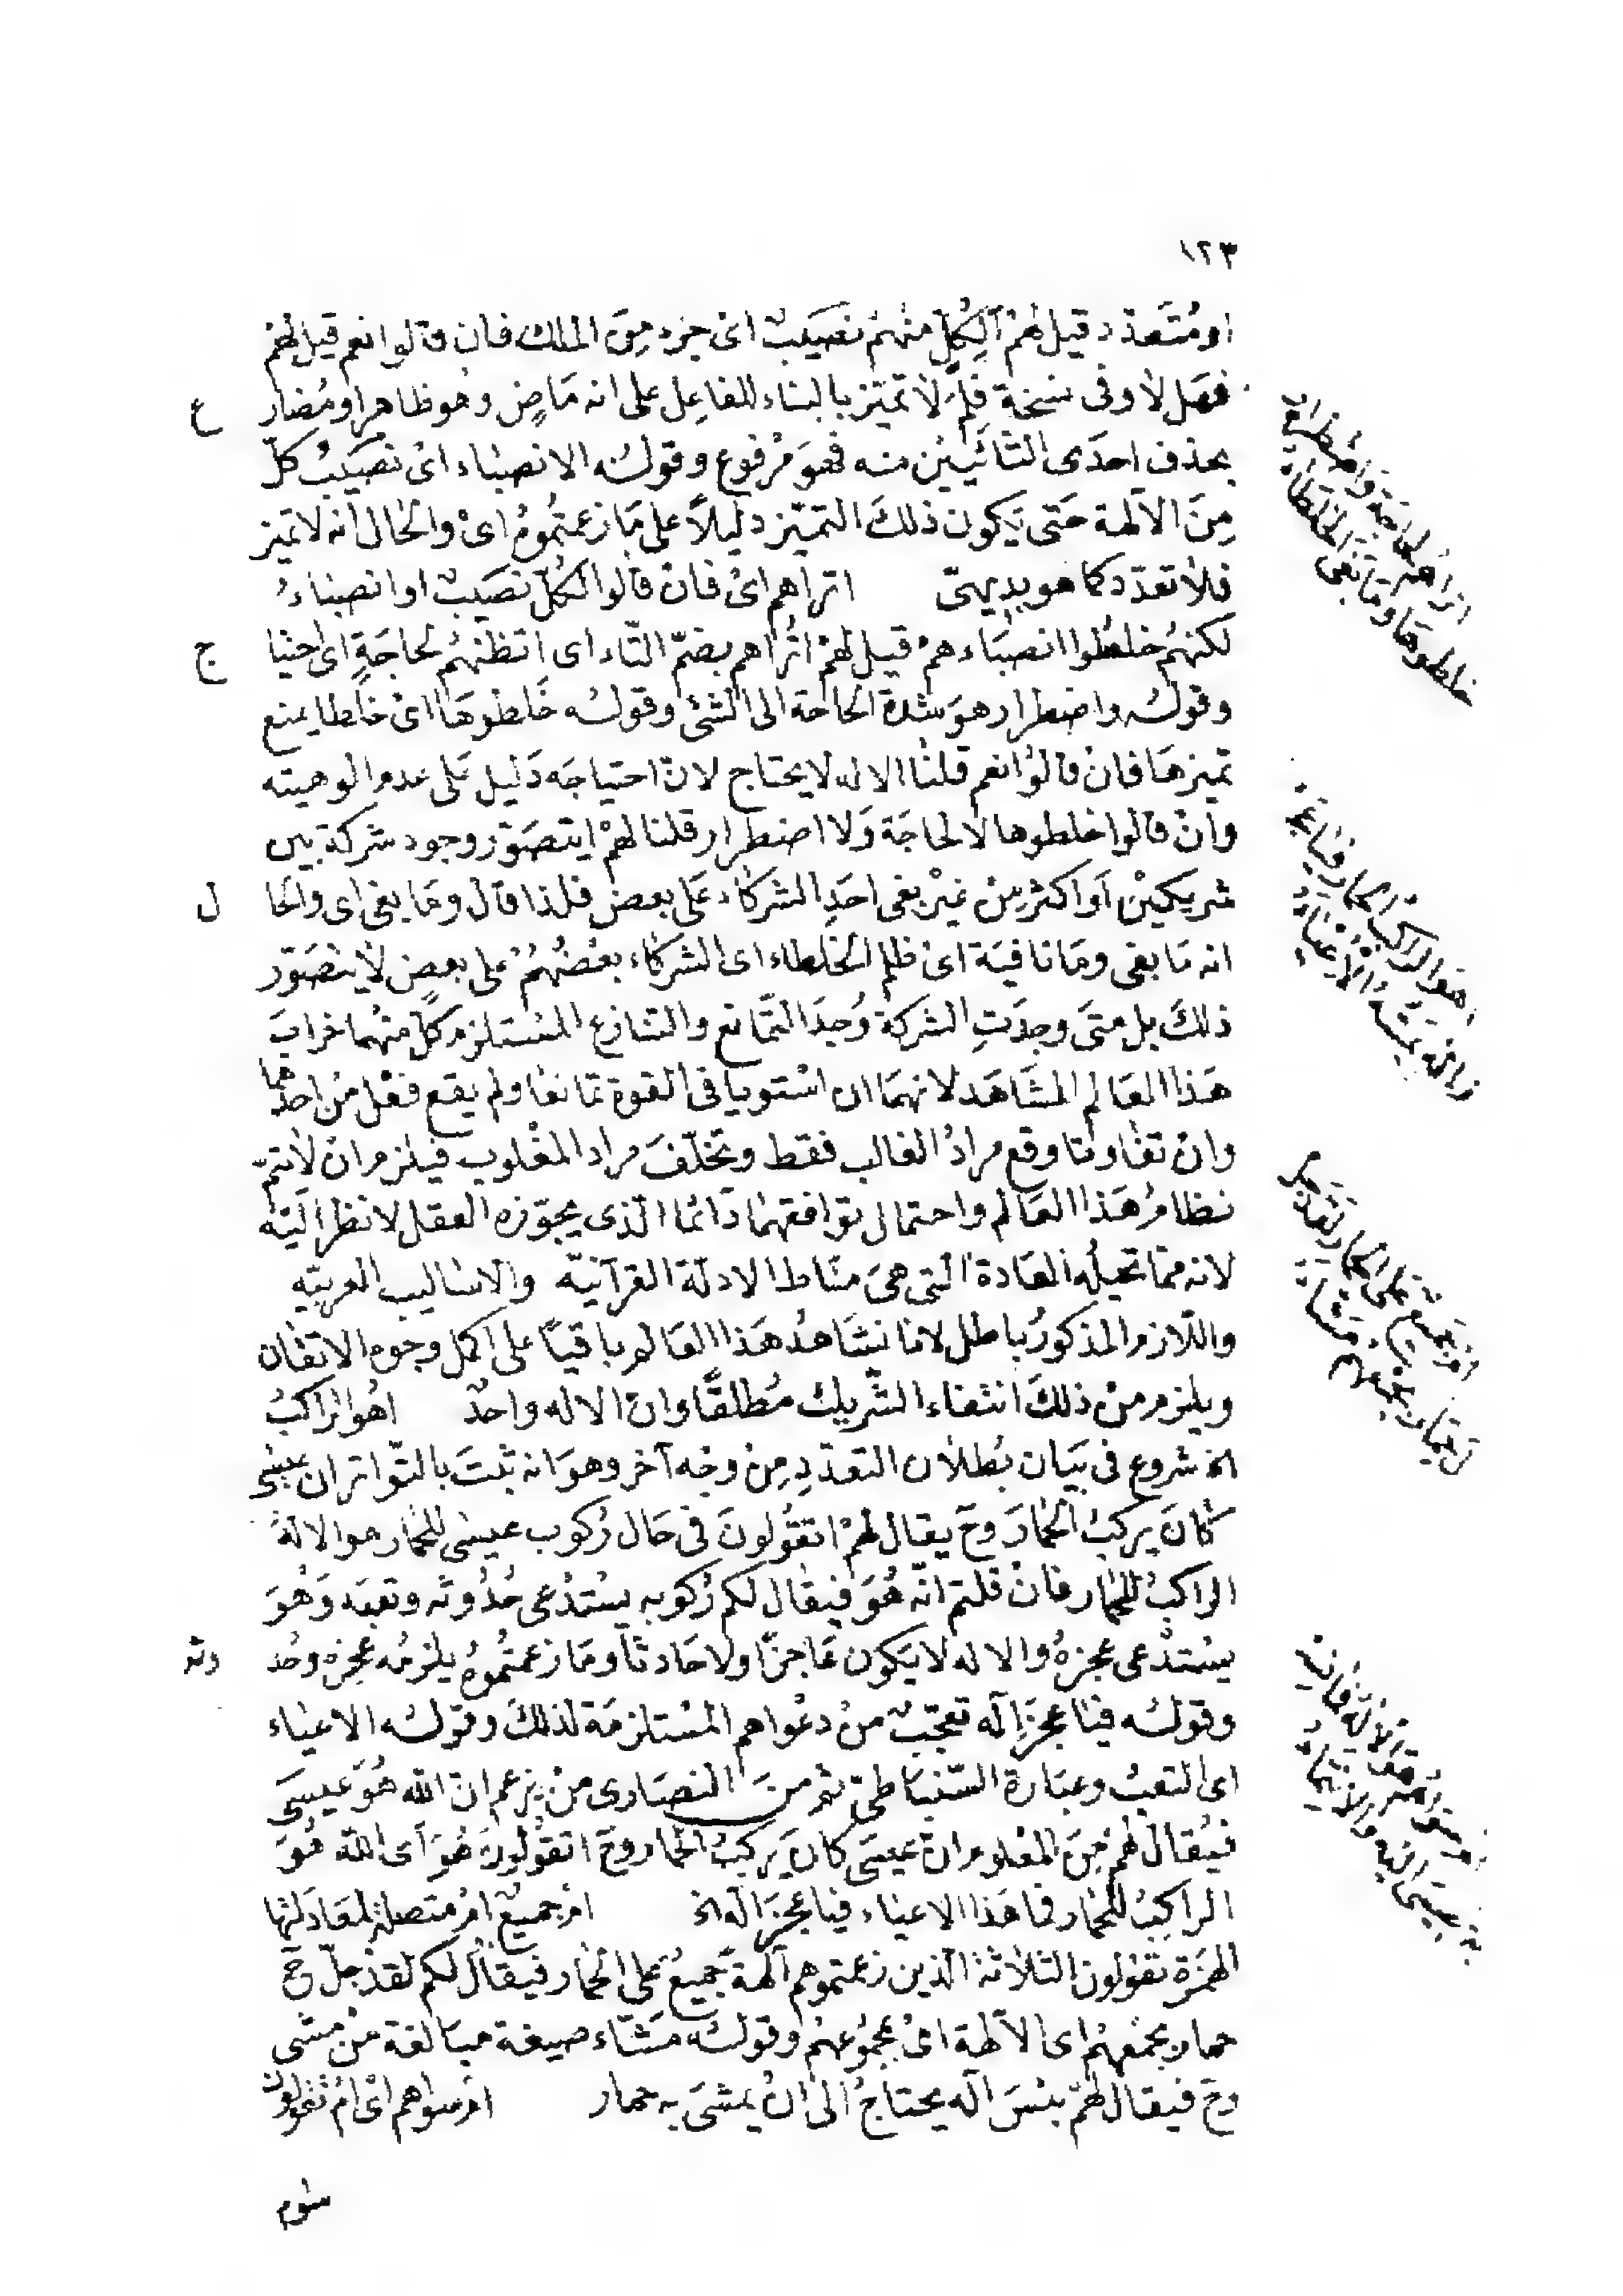 ١٢٣
او متعدد قيل لهم ألكل منهم نصيب اى جزء من الملك فان قالوا نعم قيل لهم
فهل لا وفى نسخة فلم لا تميز بالبناء للفاعل على انه ماض وهو ظاهر او مضار ع
بحذف احدى التائين منه فهو مرفوع وقوله الانصباء اى نصيب كل
من الآلهة حتى يكون ذلك التميز دليلا على ما زعمتموه اى والحال انه لا تميز
فلا تعدد كما هو بديهى اتراهم اى فان قالوا لكل نصيب او انصباء
لكنهم خلطوا انصباءهم قيل لهم اتراهم بضم التاء اى اتظنهم لحاجة اى احتيا ج
وقوله واضطرار هو شدة الحاجة الى الشئ وقوله خلطوها اى خلطا يمنع
تميزها فان قالوا نعم قلنا الاله لا يحتاج لان احتياجه دليل على عدم الوهيته
وان قالوا خلطوها لا لحاجة ولا اضطرار قلنا لهم ايتصور وجود شركة بين
شريكين او اكثر من غير بغى احد الشركاء على بعض فلذا قال وما بغى اى والحا ل
انه ما بغى وما نافية اى ظلم الخلطاء اى الشركاء بعضهم على بعض لا يتصور
ذلك بل متى وجدت الشركة وجد التمانع والتنازع المستلزم كل منهما خراب
هذا العالم المشاهد لانهما ان استويا فى القوة تمانعا ولم يقع فعل من احدهما
وان تفاوتا وقع مراد الغالب فقط وتخلف مراد المغلوب فيلزم ان لا يتم
نظام هذا العالم واحتمال توافقهما دائما الذى يجوزه العقل لا نظر اليه
لانه مما تحيله العادة التى هى مناط الادلة القرآنية والاساليب العربية
واللازم المذكور باطل لانا نشاهد هذا العالم باقيا على اكمل وجوه الاتقان
ويلزم من ذلك انتفاء الشريك مطلقا وان الاله واحد اهو الراكب
الخ شروع فى بيان بطلان التعدد من وجه آخر وهو انه ثبت بالتواتر ان عيسى
كان يركب الحمار وح يقال لهم اتقولون فى حال ركوب عيسى للحمار هو الاله
الراكب للحمار فان قلتم انه هو فيقال لكم ركوبه يستدعى حدوثه وتعبه وهو
يستدعى عجزه والاله لا يكون عاجزا ولا حادثا وما زعمتموه يلزمه عجزه وحد وثه
وقوله فيا عجز اله تعجب من دعواهم المستلزمة لذلك وقوله الاعياء
اى التعب وعبارة السنباطى ثم من النصارى من يزعم ان الله هو عيسى
فيقال لهم من المعلوم ان عيسى كان يركب الحمار وح اتقولون هو اى الله هو
الراكب للحمار فما هذا الاعياء فيا عجز اله الخ ام جميع ام متصلة لمعادلتها
الهمزة تقولون الثلاثة الذين زعمتموهم آلهة جميع على الحمار فيقال لكم لقد جل ح
حمار بجمعهم اى الآلهة اى بمجموعهم وقوله مشاء صيغة مبالغة من مشى
وح فيقال لهم بئس اله يحتاج الى ان يمشى به حمار ام سواهم اى ام تقولون
سوم
اتراهم لحاجة واضطرار
خلطوها وما بغى الخلطاء
اهو الراكب الحمار فيا عجز
اله يمسه الاعياء
ام جميع على الحمار لقد جل
حمار بجمعهم مشاء
ام سواهم هو الاله فما نسبة
عيسى اليه والانتماء